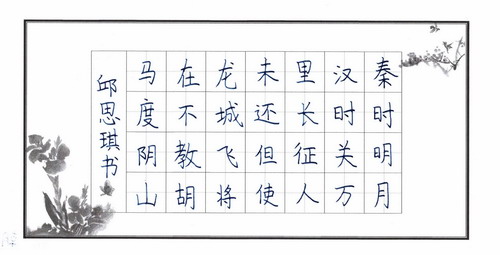 秦时明月
汉时关万
里长征人
未还但使
龙城飞将
在不教胡
马度阴山
邱思琪书